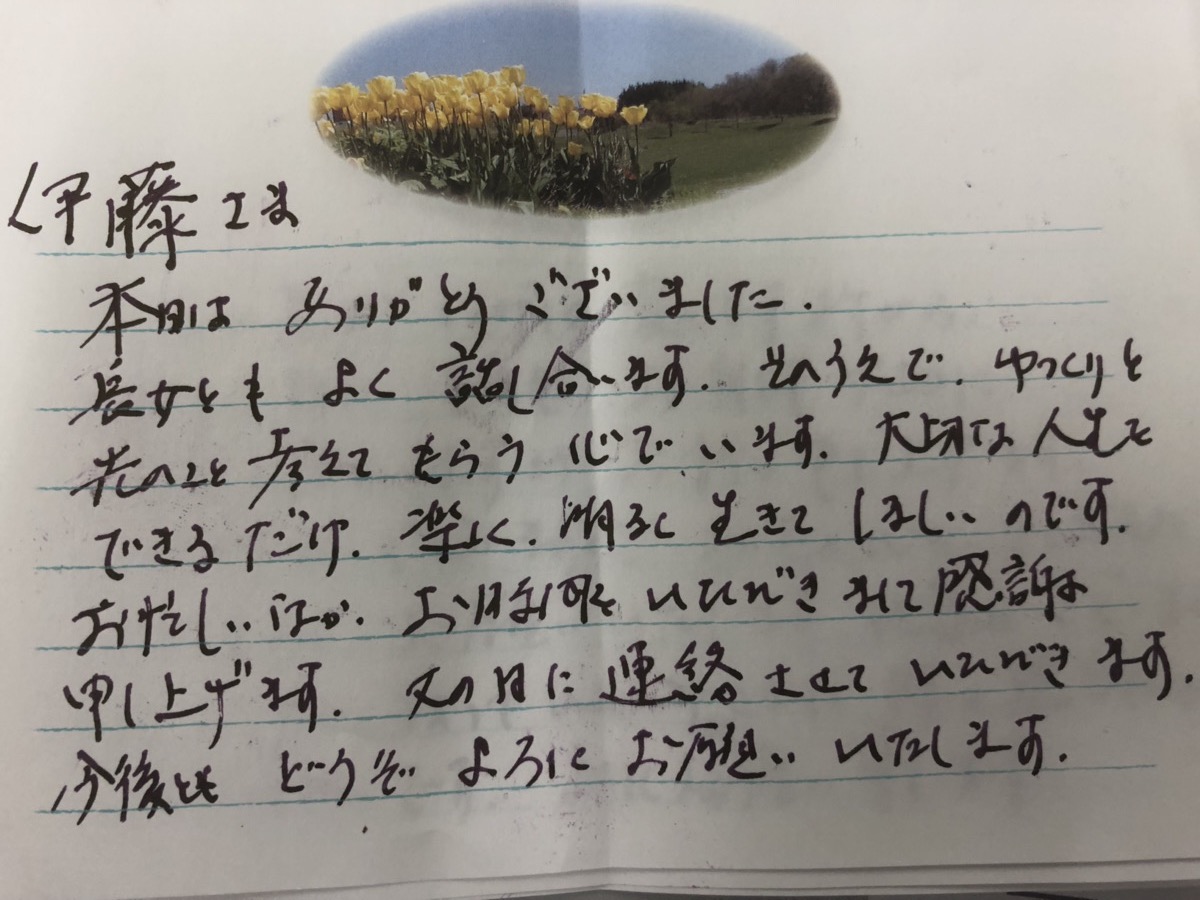 伊藤さま
本日は ありがとう ございました.
長女とも よく 話し合います. そのうえで. ゆっくりと
先のこと 考えて もらう 心で います. 大切な 人生を
できる だけ. 楽に. 明るく 生きて ほしい のです.
お忙しい ほか. お時間を いただき まして 感謝
申し上げます. 又の日に 連絡 させて いただきます.
今後とも どうぞ よろしく お願い いたします.